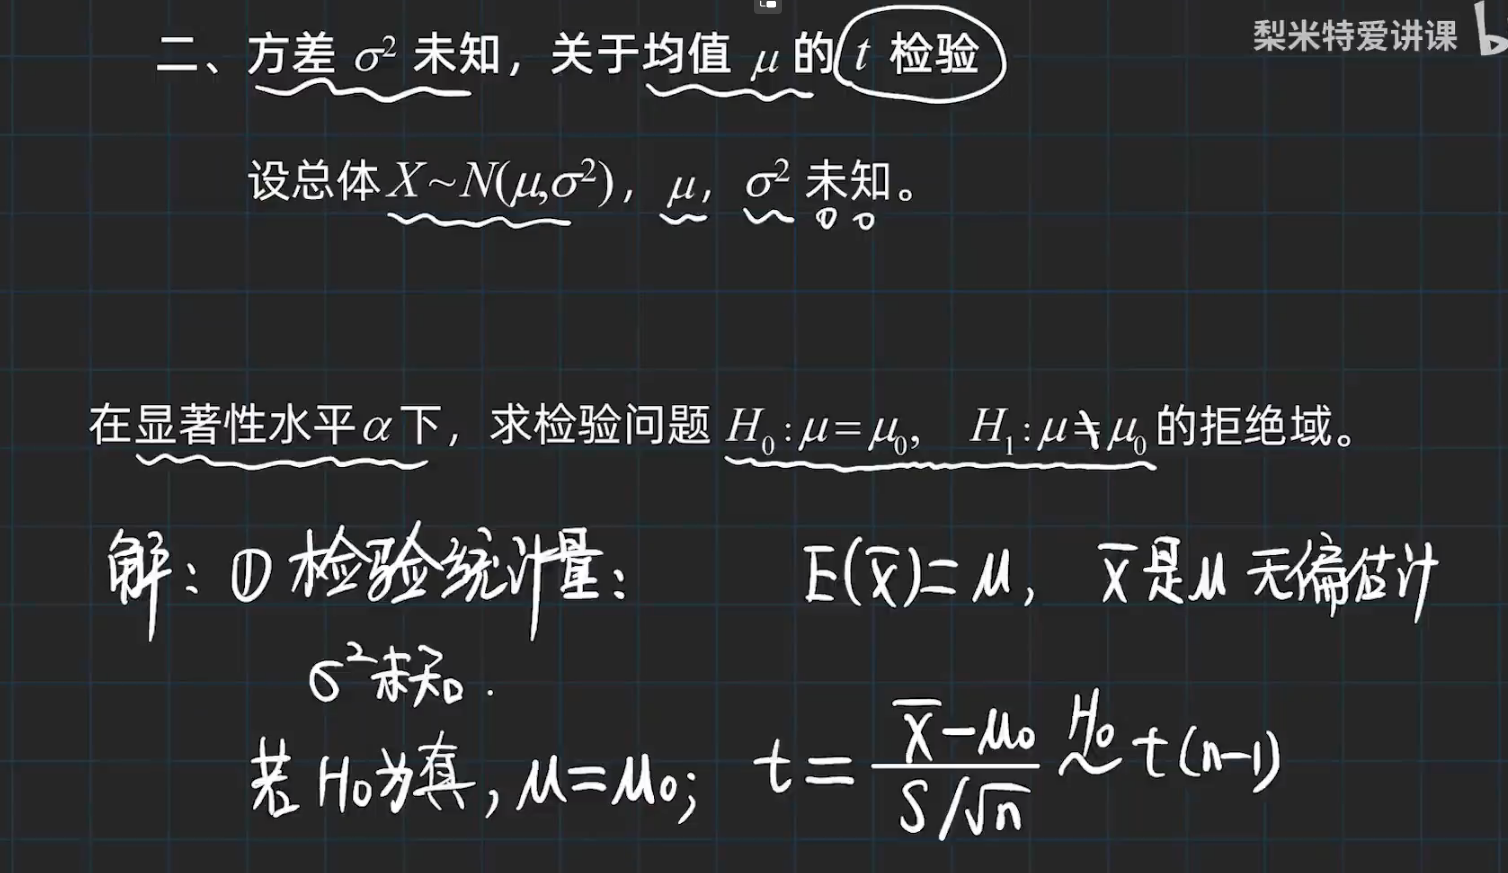 梨米特爱讲课 b
二、方差 σ² 未知，关于均值 μ 的 t 检验
设总体 X~N(μ,σ²)，μ，σ² 未知。
在显著性水平 α 下，求检验问题 H₀:μ=μ₀, H₁:μ≠μ₀ 的拒绝域。
解：① 检验统计量： E(x̄)=μ, x̄是μ 无偏估计
σ²未知.
若 H₀为真, μ=μ₀; t = (x̄-μ₀)/(S/√n) ~ᴴ⁰ t(n-1)